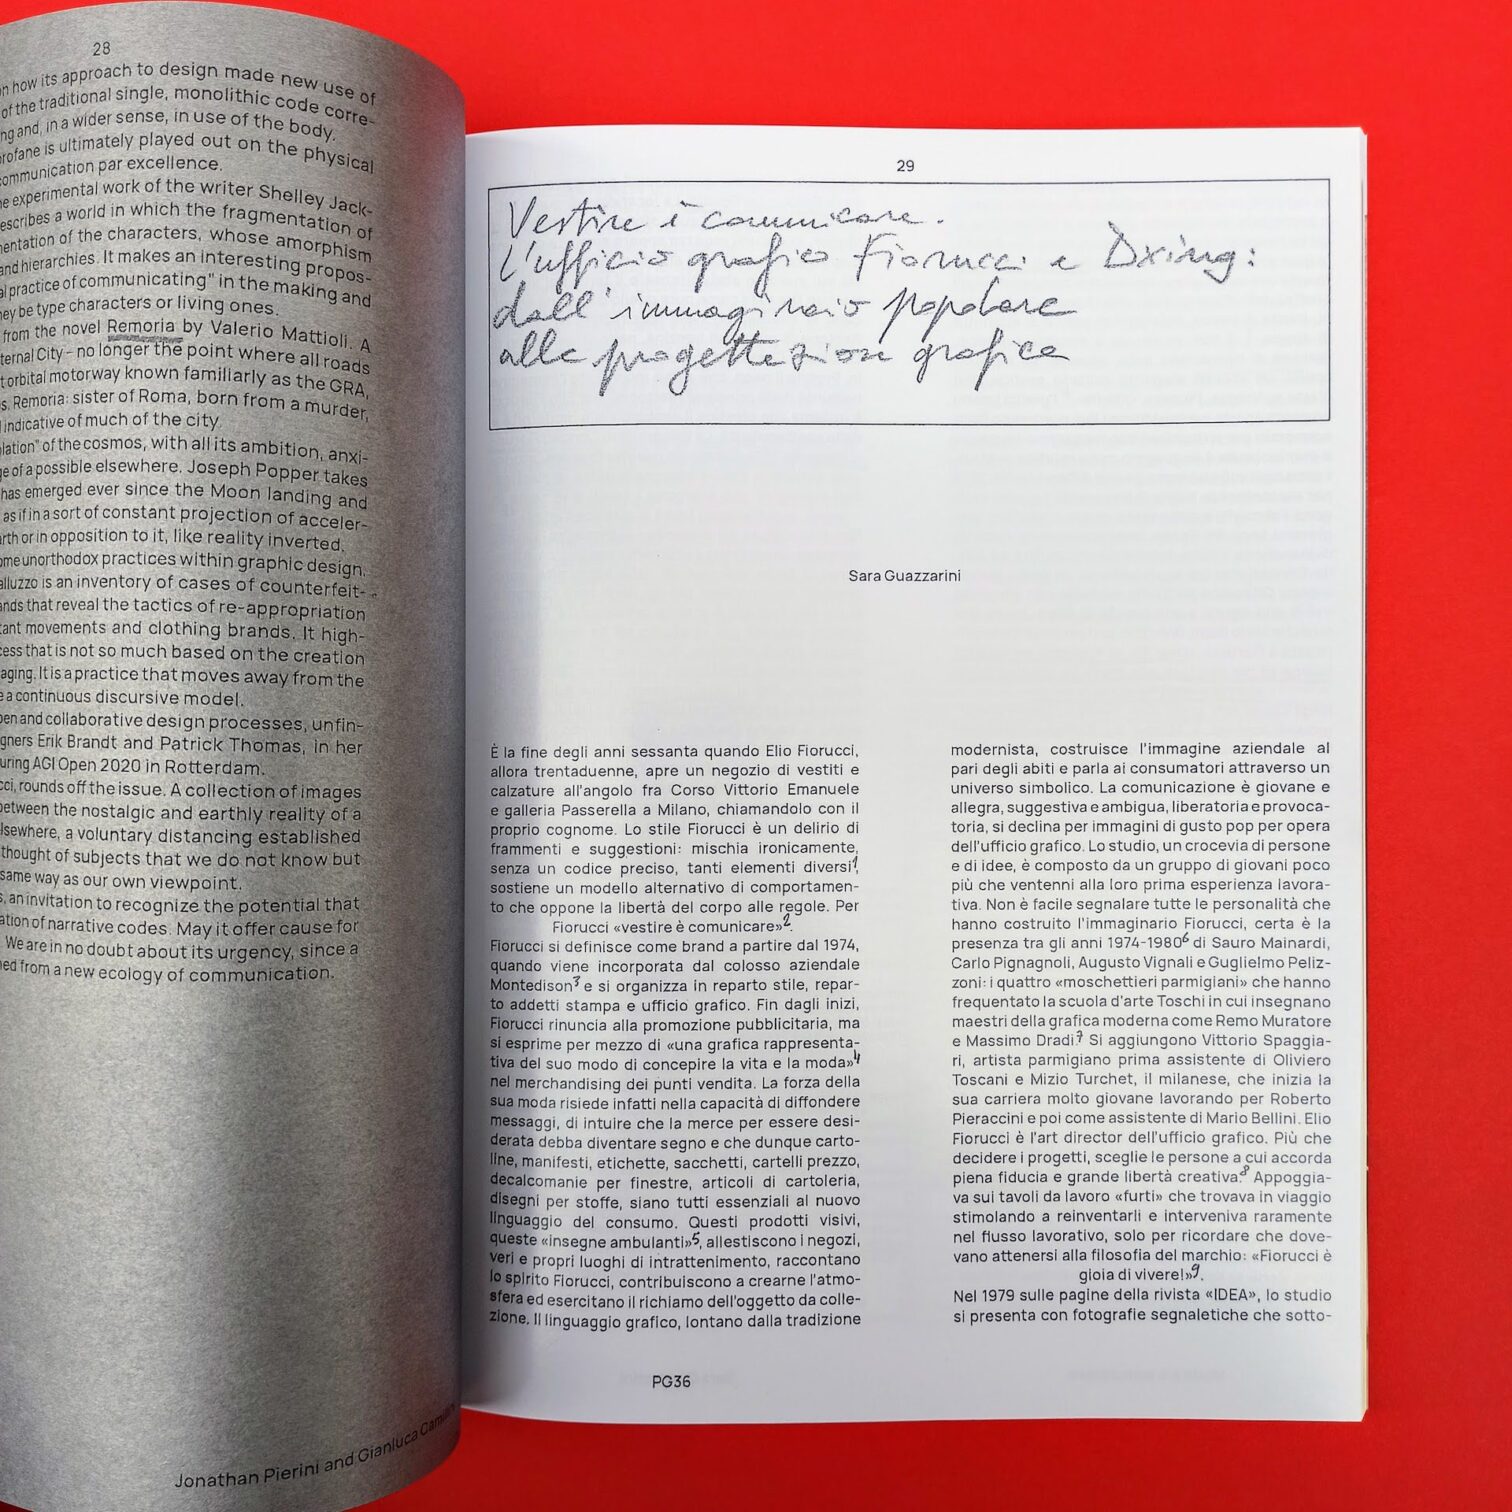 28
n how its approach to design made new use of
of the traditional single, monolithic code corre-
ng and, in a wider sense, in use of the body.
rofane is ultimately played out on the physical
ommunication par excellence.
e experimental work of the writer Shelley Jack-
escribes a world in which the fragmentation of
mentation of the characters, whose amorphism
and hierarchies. It makes an interesting propos-
al practice of communicating" in the making and
hey be type characters or living ones.
from the novel Remoria by Valerio Mattioli. A
ternal City – no longer the point where all roads
t orbital motorway known familiarly as the GRA,
s. Remoria: sister of Roma, born from a murder,
l indicative of much of the city.
lation" of the cosmos, with all its ambition, anxi-
ge of a possible elsewhere. Joseph Popper takes
has emerged ever since the Moon landing and
as if in a sort of constant projection of acceler-
arth or in opposition to it, like reality inverted.
ome unorthodox practices within graphic design.
alluzzo is an inventory of cases of counterfeit-
ands that reveal the tactics of re-appropriation
tant movements and clothing brands. It high-
cess that is not so much based on the creation
aging. It is a practice that moves away from the
e a continuous discursive model.
pen and collaborative design processes, unfin-
gners Erik Brandt and Patrick Thomas, in her
uring AGI Open 2020 in Rotterdam.
cci, rounds off the issue. A collection of images
between the nostalgic and earthly reality of a
lsewhere, a voluntary distancing established
thought of subjects that we do not know but
same way as our own viewpoint.
s, an invitation to recognize the potential that
ation of narrative codes. May it offer cause for
We are in no doubt about its urgency, since a
ned from a new ecology of communication.
Jonathan Pierini and Gianluca Camillini
29
Vestire è comunicare.
L'ufficio grafico Fiorucci e Dxing:
dall'immaginaio popolare
alla progettazione grafica
Sara Guazzarini
È la fine degli anni sessanta quando Elio Fiorucci,
allora trentaduenne, apre un negozio di vestiti e
calzature all'angolo fra Corso Vittorio Emanuele
e galleria Passerella a Milano, chiamandolo con il
proprio cognome. Lo stile Fiorucci è un delirio di
frammenti e suggestioni: mischia ironicamente,
senza un codice preciso, tanti elementi diversi¹,
sostiene un modello alternativo di comportamen-
to che oppone la libertà del corpo alle regole. Per
Fiorucci «vestire è comunicare»².
Fiorucci si definisce come brand a partire dal 1974,
quando viene incorporata dal colosso aziendale
Montedison³ e si organizza in reparto stile, repar-
to addetti stampa e ufficio grafico. Fin dagli inizi,
Fiorucci rinuncia alla promozione pubblicitaria, ma
si esprime per mezzo di «una grafica rappresenta-
tiva del suo modo di concepire la vita e la moda»⁴
nel merchandising dei punti vendita. La forza della
sua moda risiede infatti nella capacità di diffondere
messaggi, di intuire che la merce per essere desi-
derata debba diventare segno e che dunque carto-
line, manifesti, etichette, sacchetti, cartelli prezzo,
decalcomanie per finestre, articoli di cartoleria,
disegni per stoffe, siano tutti essenziali al nuovo
linguaggio del consumo. Questi prodotti visivi,
queste «insegne ambulanti»⁵, allestiscono i negozi,
veri e propri luoghi di intrattenimento, raccontano
lo spirito Fiorucci, contribuiscono a crearne l'atmo-
sfera ed esercitano il richiamo dell'oggetto da colle-
zione. Il linguaggio grafico, lontano dalla tradizione
modernista, costruisce l'immagine aziendale al
pari degli abiti e parla ai consumatori attraverso un
universo simbolico. La comunicazione è giovane e
allegra, suggestiva e ambigua, liberatoria e provoca-
toria, si declina per immagini di gusto pop per opera
dell'ufficio grafico. Lo studio, un crocevia di persone
e di idee, è composto da un gruppo di giovani poco
più che ventenni alla loro prima esperienza lavora-
tiva. Non è facile segnalare tutte le personalità che
hanno costruito l'immaginario Fiorucci, certa è la
presenza tra gli anni 1974-1980⁶ di Sauro Mainardi,
Carlo Pignagnoli, Augusto Vignali e Guglielmo Peliz-
zoni: i quattro «moschettieri parmigiani» che hanno
frequentato la scuola d'arte Toschi in cui insegnano
maestri della grafica moderna come Remo Muratore
e Massimo Dradi.⁷ Si aggiungono Vittorio Spaggia-
ri, artista parmigiano prima assistente di Oliviero
Toscani e Mizio Turchet, il milanese, che inizia la
sua carriera molto giovane lavorando per Roberto
Pieraccini e poi come assistente di Mario Bellini. Elio
Fiorucci è l'art director dell'ufficio grafico. Più che
decidere i progetti, sceglie le persone a cui accorda
piena fiducia e grande libertà creativa.⁸ Appoggia-
va sui tavoli da lavoro «furti» che trovava in viaggio
stimolando a reinventarli e interveniva raramente
nel flusso lavorativo, solo per ricordare che dove-
vano attenersi alla filosofia del marchio: «Fiorucci è
gioia di vivere!»⁹.
Nel 1979 sulle pagine della rivista «IDEA», lo studio
si presenta con fotografie segnaletiche che sotto-
PG36